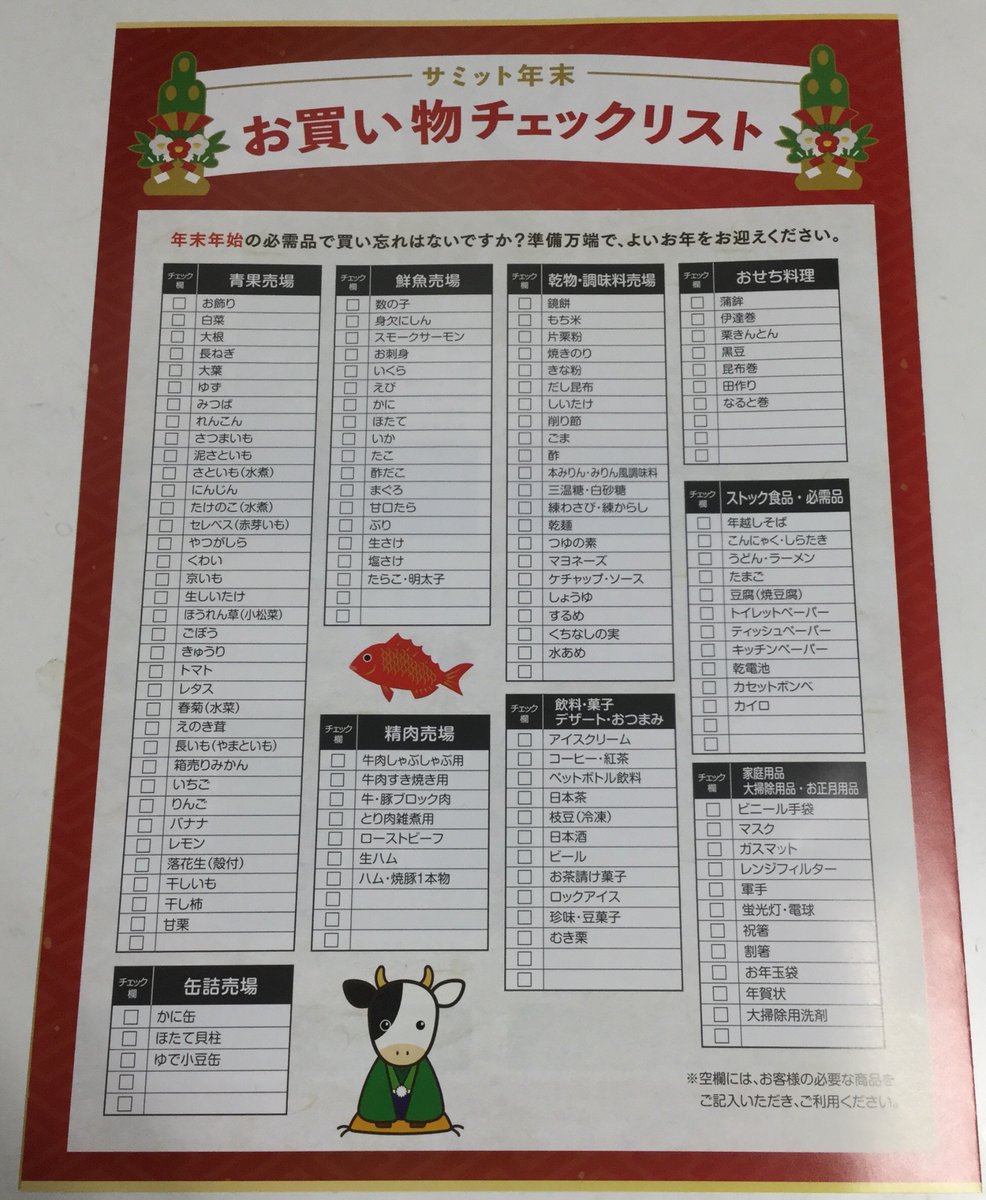 サミット年末
お買い物チェックリスト
年末年始の必需品で買い忘れはないですか？準備万端で、よいお年をお迎えください。
チェック欄 青果売場
お飾り
白菜
大根
長ねぎ
大葉
ゆず
みつば
れんこん
さつまいも
泥さといも
さといも(水煮)
にんじん
たけのこ(水煮)
セレベス(赤芽いも)
やつがしら
くわい
京いも
生しいたけ
ほうれん草(小松菜)
ごぼう
きゅうり
トマト
レタス
春菊(水菜)
えのき茸
長いも(やまといも)
箱売りみかん
いちご
りんご
バナナ
レモン
落花生(殻付)
干しいも
干し柿
甘栗
チェック欄 缶詰売場
かに缶
ほたて貝柱
ゆで小豆缶
チェック欄 鮮魚売場
数の子
身欠にしん
スモークサーモン
お刺身
いくら
えび
かに
ほたて
いか
たこ
酢だこ
まぐろ
甘口たら
ぶり
生さけ
塩さけ
たらこ・明太子
チェック欄 精肉売場
牛肉しゃぶしゃぶ用
牛肉すき焼き用
牛・豚ブロック肉
とり肉雑煮用
ローストビーフ
生ハム
ハム・焼豚1本物
チェック欄 乾物・調味料売場
鏡餅
もち米
片栗粉
焼きのり
きな粉
だし昆布
しいたけ
削り節
ごま
酢
本みりん・みりん風調味料
三温糖・白砂糖
練わさび・練からし
乾麺
つゆの素
マヨネーズ
ケチャップ・ソース
しょうゆ
するめ
くちなしの実
水あめ
チェック欄 飲料・菓子
デザート・おつまみ
アイスクリーム
コーヒー・紅茶
ペットボトル飲料
日本茶
枝豆(冷凍)
日本酒
ビール
お茶請け菓子
ロックアイス
珍味・豆菓子
むき栗
チェック欄 おせち料理
蒲鉾
伊達巻
栗きんとん
黒豆
昆布巻
田作り
なると巻
チェック欄 ストック食品・必需品
年越しそば
こんにゃく・しらたき
うどん・ラーメン
たまご
豆腐(焼豆腐)
トイレットペーパー
ティッシュペーパー
キッチンペーパー
乾電池
カセットボンベ
カイロ
チェック欄 家庭用品
大掃除用品・お正月用品
ビニール手袋
マスク
ガスマット
レンジフィルター
軍手
蛍光灯・電球
祝箸
割箸
お年玉袋
年賀状
大掃除用洗剤
※空欄には、お客様の必要な商品を
ご記入いただき、ご利用ください。